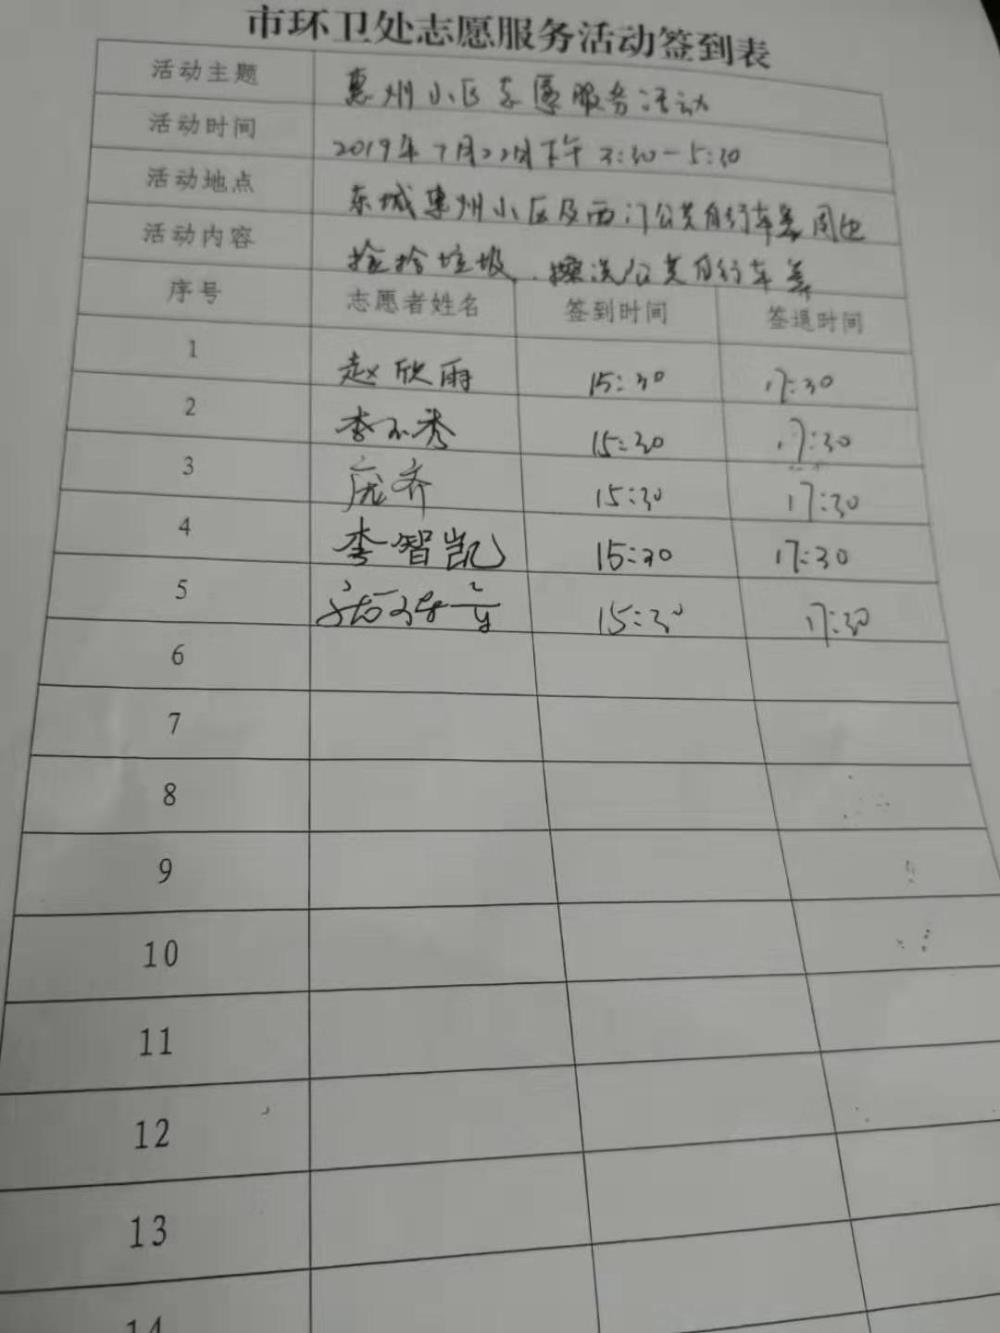 市环卫处志愿服务活动签到表
活动主题 惠州小区志愿服务活动
活动时间 2019年7月22日下午 3:30-5:30
活动地点 东城惠州小区及西门公共自行车 周边
活动内容 捡拾垃圾、擦洗公共自行车
序号 志愿者姓名 签到时间 签退时间
1 赵欣雨 15:30 17:30
2 李 秀 15:30 17:30
3 庞齐 15:30 17:30
4 李智凯 15:30 17:30
5 15:30 17:30
6
7
8
9
10
11
12
13
14